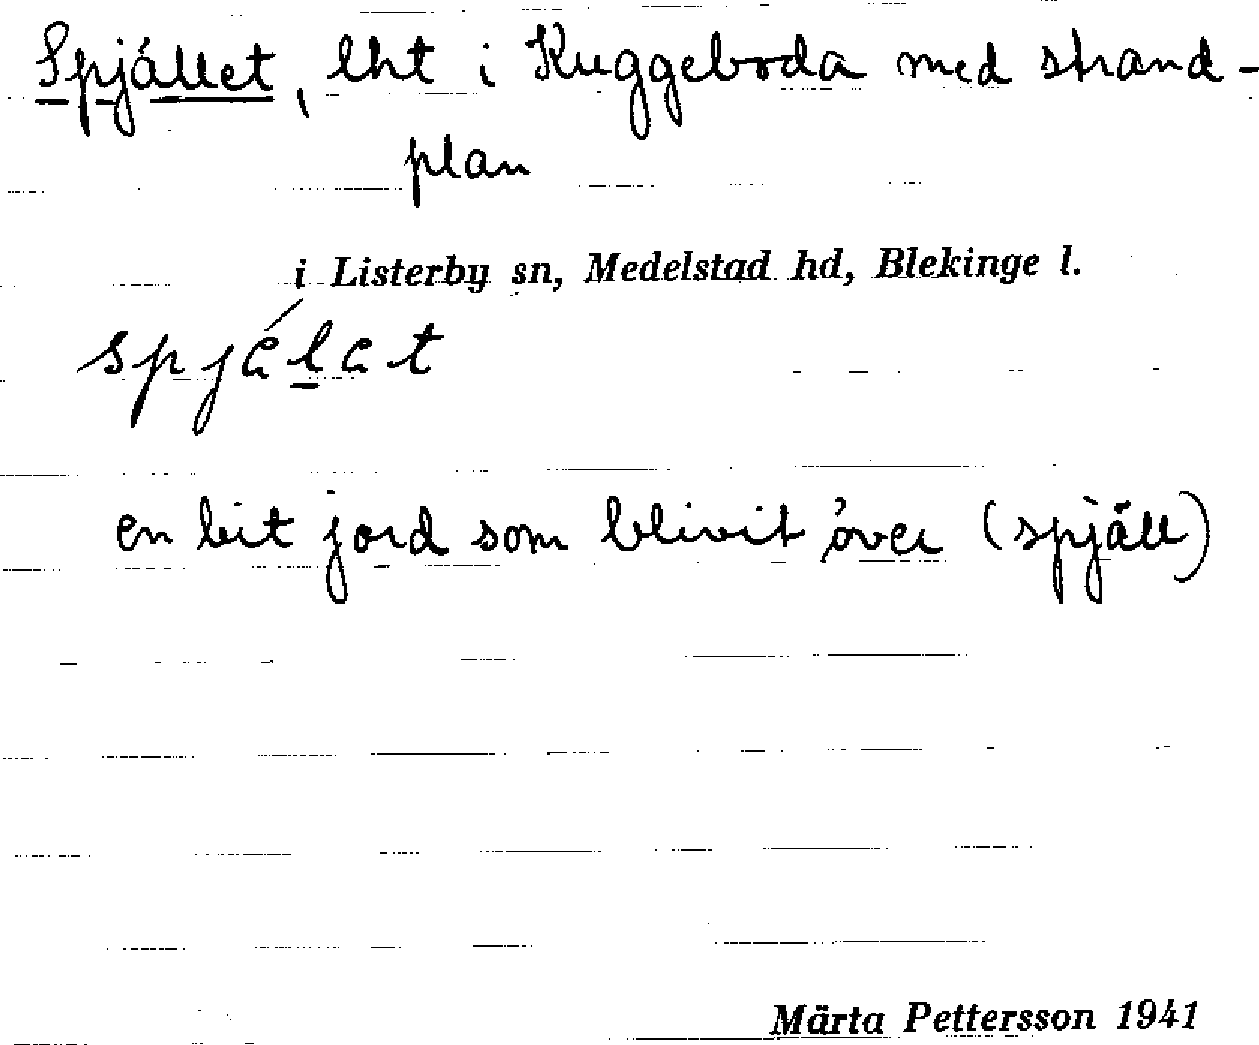 Spjället, lht i Kuggeboda med strand-
plan
i Listerby sn, Medelstad hd, Blekinge l.
spjälat
en bit jord som blivit över (spjäll)
Märta Pettersson 1941